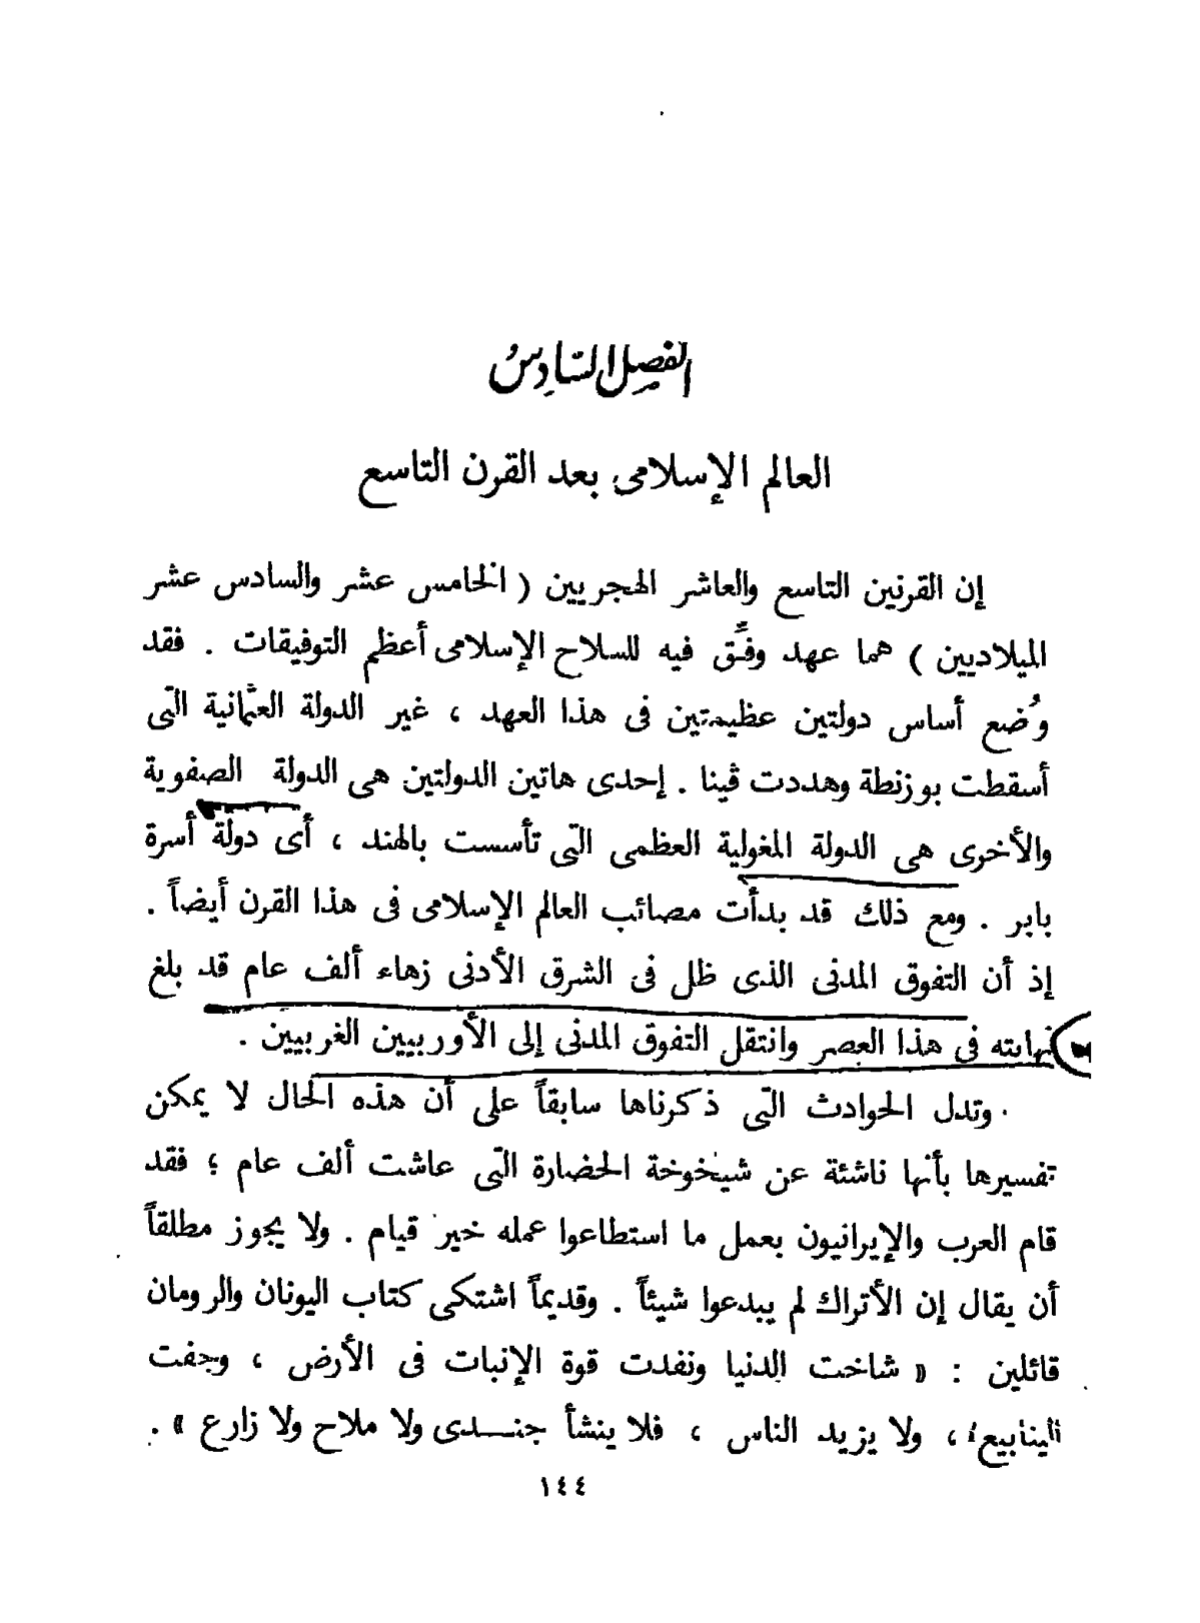 الفصل السادس
العالم الإسلامى بعد القرن التاسع
إن القرنين التاسع والعاشر الهجريين ( الخامس عشر والسادس عشر
الميلاديين ) هما عهد وفِّق فيه للسلاح الإسلامى أعظم التوفيقات . فقد
وُضع أساس دولتين عظيمتين فى هذا العهد ، غير الدولة العثمانية التى
أسقطت بوزنطة وهددت ڤينا . إحدى هاتين الدولتين هى الدولة الصفوية
والأخرى هى الدولة المغولية العظمى التى تأسست بالهند ، أى دولة أسرة
بابر . ومع ذلك قد بدأت مصائب العالم الإسلامى فى هذا القرن أيضاً .
إذ أن التفوق المدنى الذى ظل فى الشرق الأدنى زهاء ألف عام قد بلغ
نهايته فى هذا العصر وانتقل التفوق المدنى إلى الأوربيين الغربيين .
وتدل الحوادث التى ذكرناها سابقاً على أن هذه الحال لا يمكن
تفسيرها بأنها ناشئة عن شيخوخة الحضارة التى عاشت ألف عام ؛ فقد
قام العرب والإيرانيون بعمل ما استطاعوا عمله خير قيام . ولا يجوز مطلقاً
أن يقال إن الأتراك لم يبدعوا شيئاً . وقديماً اشتكى كتاب اليونان والرومان
قائلين : « شاخت الدنيا ونفدت قوة الإنبات فى الأرض ، وجفت
الينابيع ، ولا يزيد الناس ، فلا ينشأ جندى ولا ملاح ولا زارع » .
١٤٤